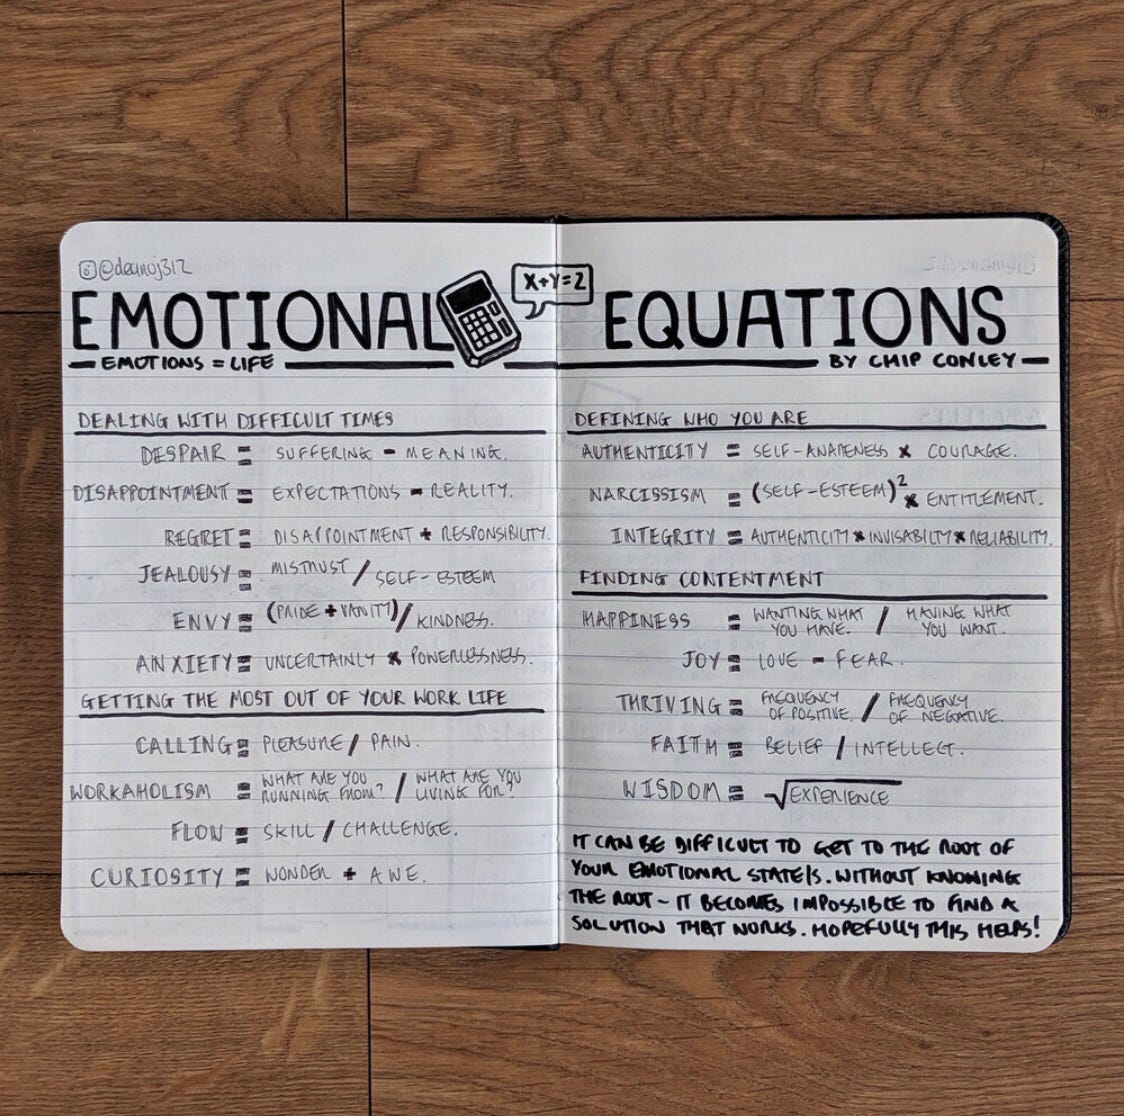 @deanoj312
EMOTIONAL
X+Y=Z
EQUATIONS
EMOTIONS = LIFE
BY CHIP CONLEY
DEALING WITH DIFFICULT TIMES
DESPAIR = SUFFERING - MEANING.
DISAPPOINTMENT = EXPECTATIONS - REALITY.
REGRET = DISAPPOINTMENT + RESPONSIBILITY.
JEALOUSY = MISTRUST / SELF-ESTEEM
ENVY = (PRIDE + VANITY) / KINDNESS.
ANXIETY = UNCERTAINLY × POWERLESSNESS.
GETTING THE MOST OUT OF YOUR WORK LIFE
CALLING = PLEASURE / PAIN.
WORKAHOLISM = WHAT ARE YOU RUNNING FROM? / WHAT ARE YOU LIVING FOR?
FLOW = SKILL / CHALLENGE.
CURIOSITY = WONDER + AWE.
DEFINING WHO YOU ARE
AUTHENTICITY = SELF-AWARENESS × COURAGE.
NARCISSISM = (SELF-ESTEEM)² × ENTITLEMENT.
INTEGRITY = AUTHENTICITY × INVISABILTY × RELIABILITY.
FINDING CONTENTMENT
HAPPINESS = WANTING WHAT YOU HAVE. / HAVING WHAT YOU WANT.
JOY = LOVE - FEAR.
THRIVING = FREQUENCY OF POSITIVE. / FREQUENCY OF NEGATIVE.
FAITH = BELIEF / INTELLECT.
WISDOM = √EXPERIENCE
IT CAN BE DIFFICULT TO GET TO THE ROOT OF
YOUR EMOTIONAL STATE/S. WITHOUT KNOWING
THE ROOT - IT BECOMES IMPOSSIBLE TO FIND A
SOLUTION THAT WORKS. HOPEFULLY THIS HELPS!